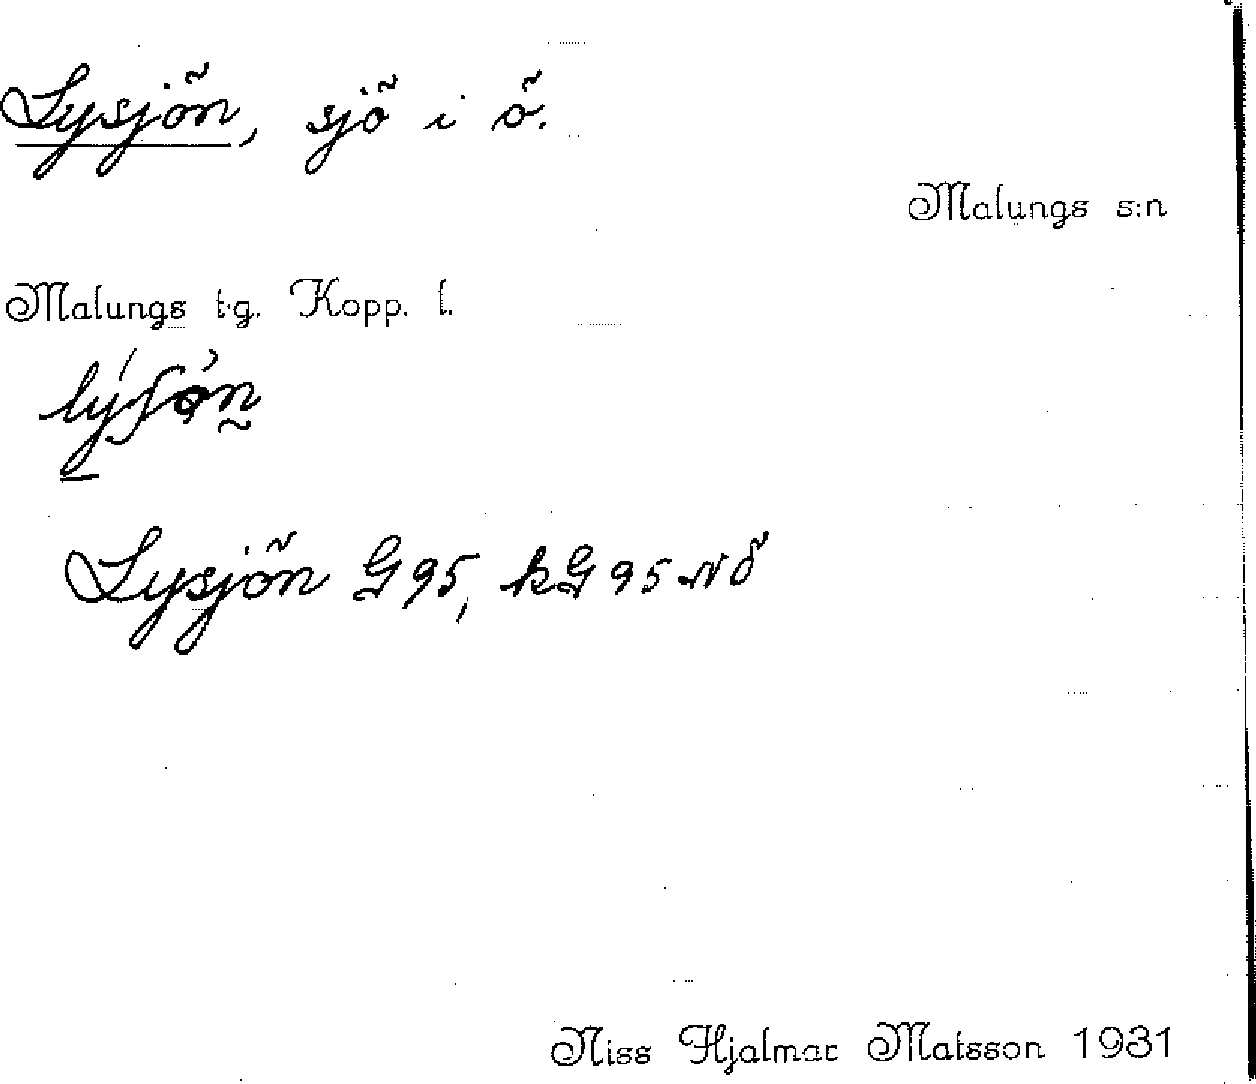 Lysjön, sjö i ö.
Malungs s:n
Malungs t.g. Kopp. l.
Lysjön G 95, kG 95 NÖ
Niss Hjalmar Matsson 1931